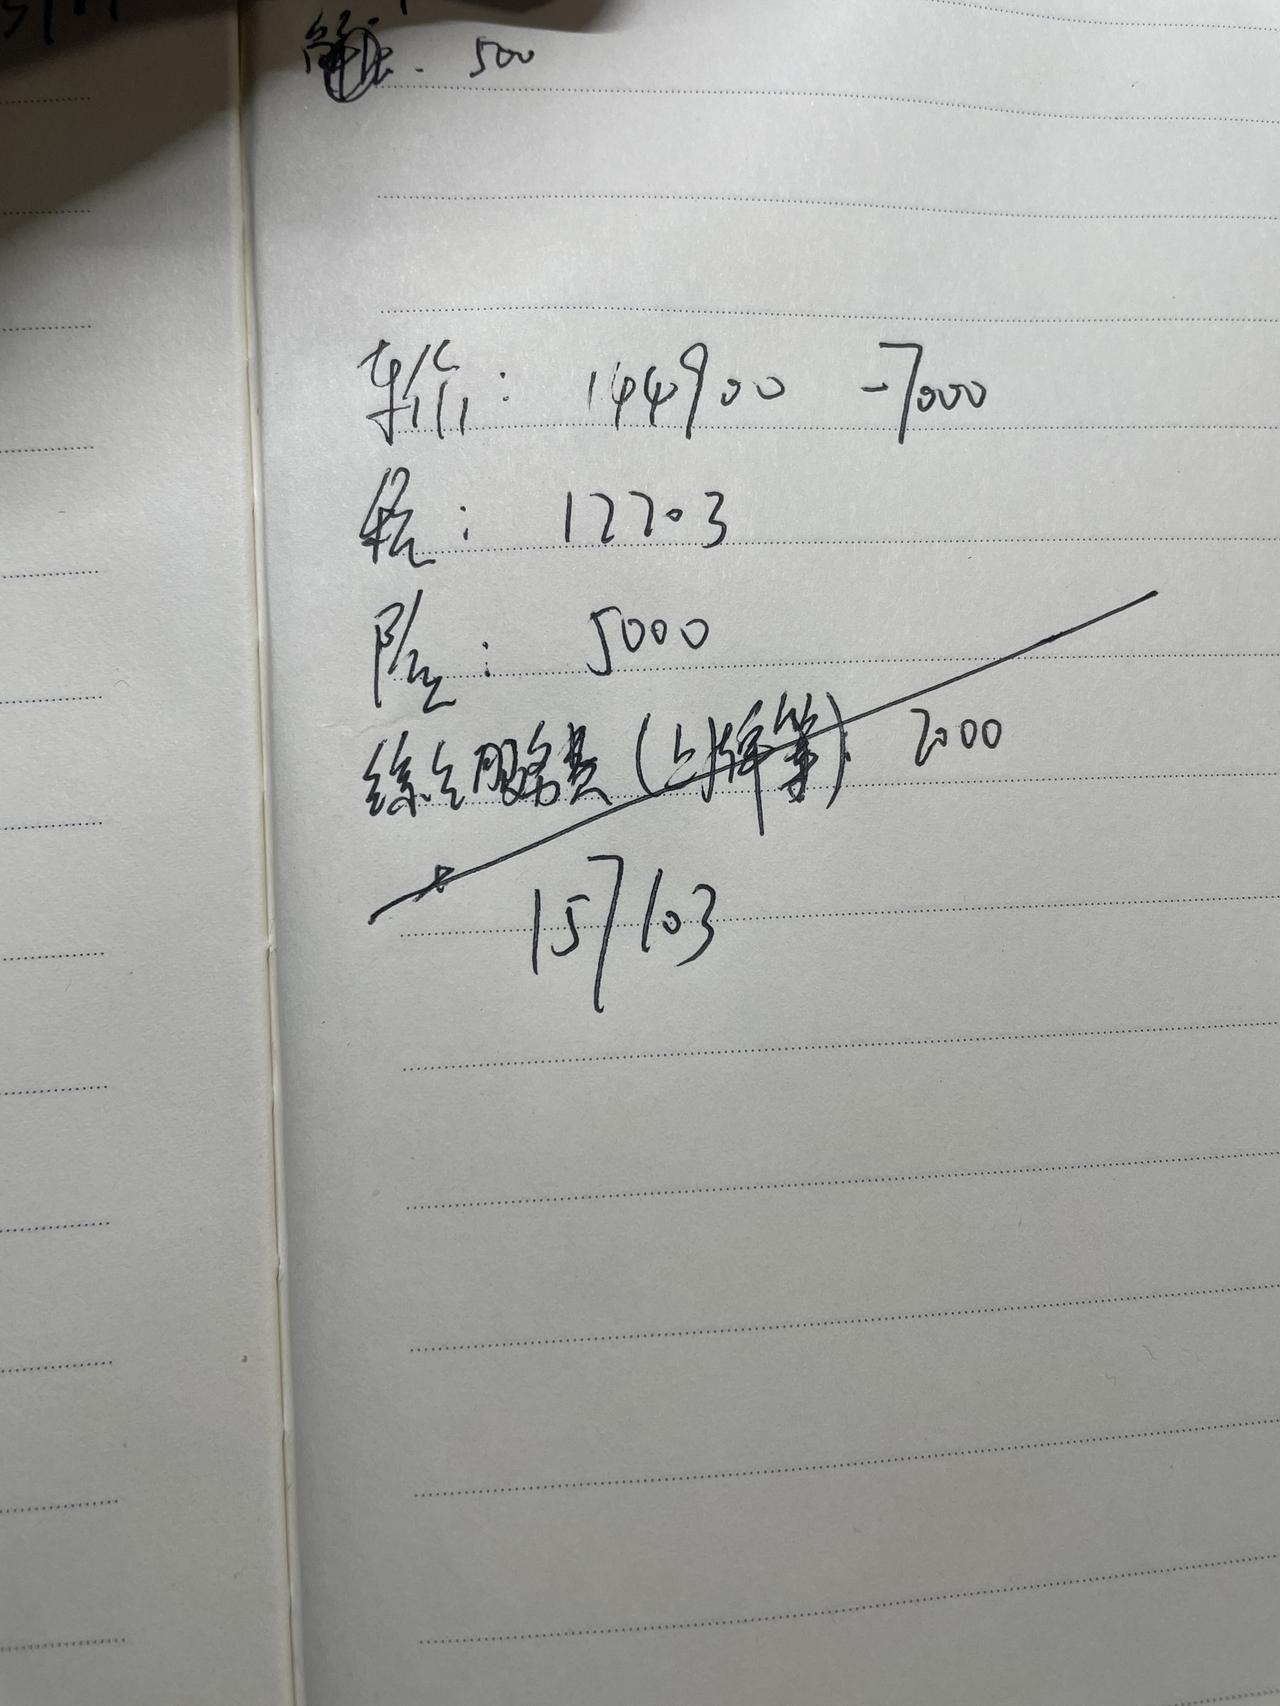 500
车价: 144900 -7000
税: 12203
险: 5000
综合服务费(上牌等) 2000
157103